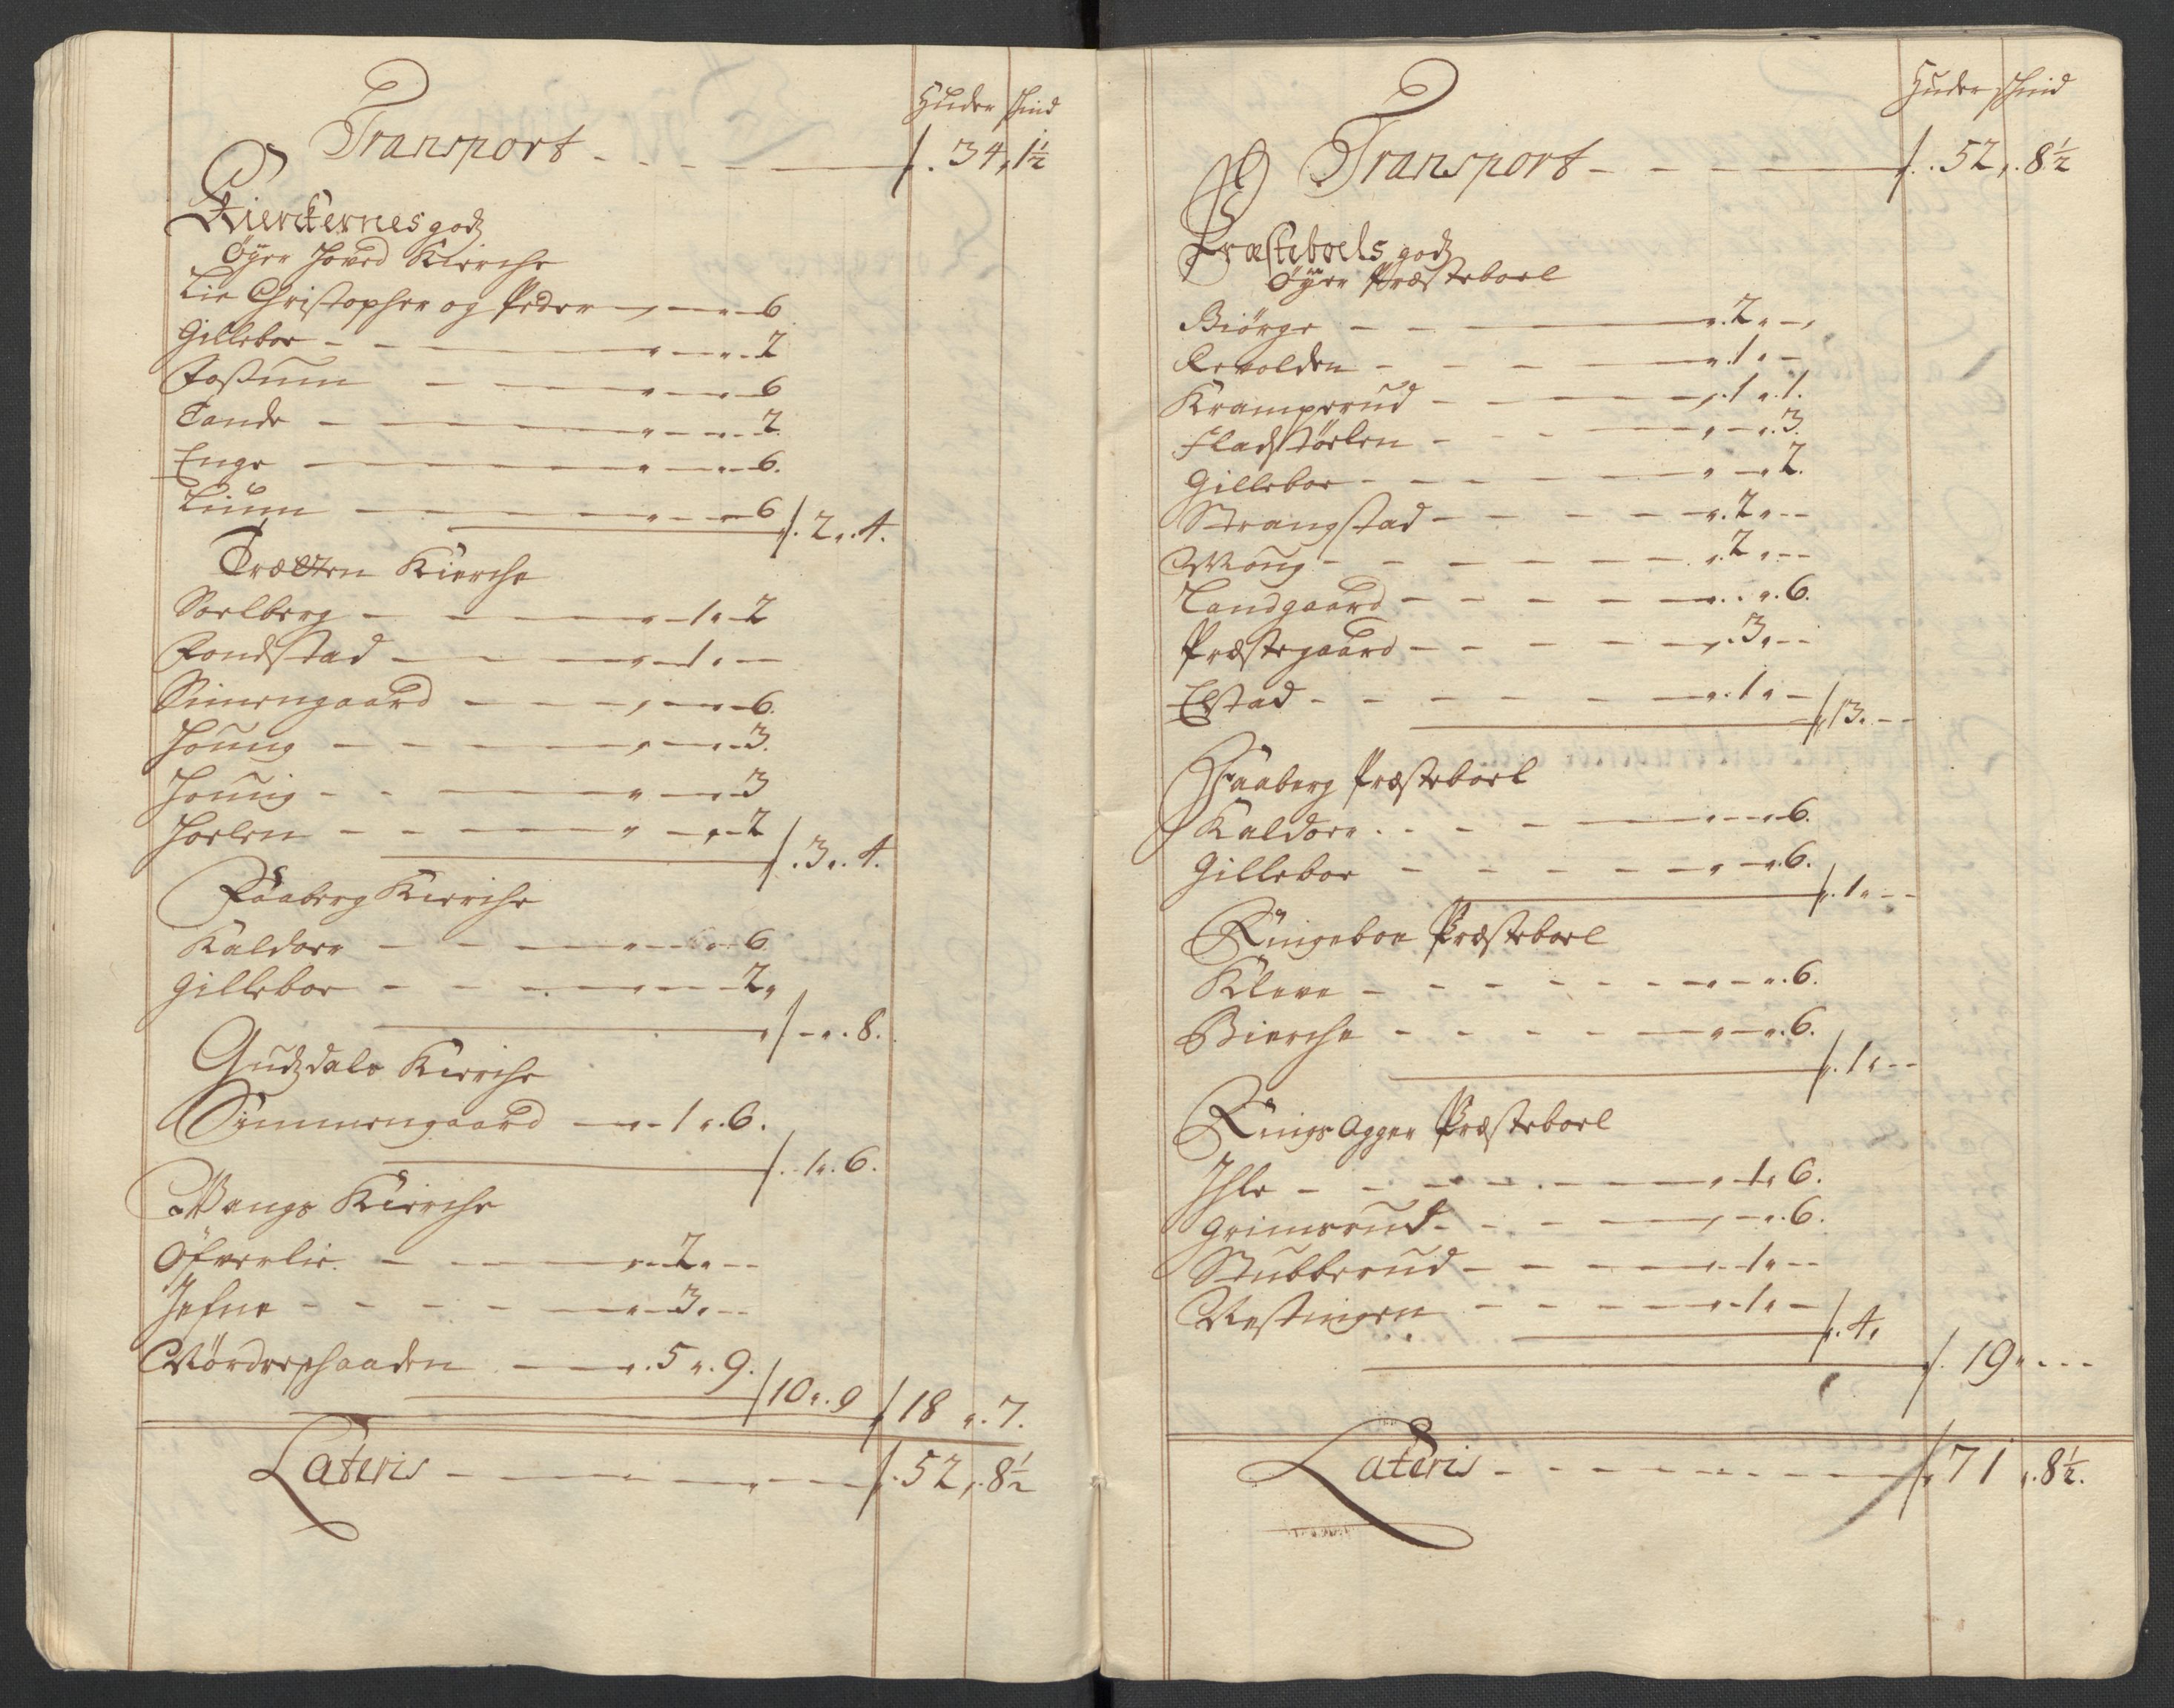 Huder Skind
Transport - - - - - 34 „ 1½
Kierckernes godz
Öyer Hoved Kierche
Lie Christopher og Peder - „ - „ - 6
Gilleboe - - - „ - „ - 2
Fossum - - - „ - „ - 6
Tande - - - „ - „ - 2.
Enge - - - „ - „ - 6.
Liumb - - - „ - „ - 6
2 „ 4.
Trætten Kierche
Soelberg - - - „ - 1 „ 2
Rondstad - - - „ - 1 „ -
Simengaard - - - „ - „ - 6.
Houng - - - „ - „ - 3.
Houng - - - „ - „ - 3
Hoelen - - - „ - „ - 2
3 „ 4.
Faaberg Kierche
Kaldore - - - „ - „ 6
Gilleboe - - - „ - - 2 „
„ - „ 8.
Gudzdals Kierche
Simmengaard - „ - 1 „ 6.
1 „ 6.
Wangs Kierche
Öfverlie - - - „ 2 „ - -
Jefne - - - „ - 3 „ - -
Nördreschaaden - „ 5 „ 9.
10 „ 9 18 „ 7.
Lateris - - - - 52 „ 8½
Huder Skind
Transport - - - - 52 „ 8½
Præsteboels godz
Öyer Præsteboel
Biörge - - - „ 2 „ -
Revolden - - - „ 1 „ -
Kramperud - - - „ 1 „ 1.
Fladstöelen - - - „ - „ 3.
Gilleboe - - - „ - „ 2.
Strangstad - - - „ 2 „ - -
Moug - - - „ 2 „ - -
Landgaard - - - „ - „ 6.
Præstegaard - - - „ 3 „ - -
Elstad - - - „ 1 „ -
13 „ - -
Faaberg Præsteboel
Kaldore - - - „ - „ 6.
Gilleboe - - - „ - „ 6.
„ 1 „ - -
Ringeboe Præsteboel
Kleve - - - „ - „ 6.
Bierche - - - „ - „ 6.
„ 1 „ - -
Rings Agger Præsteboel
Ihle - - - „ 1 „ 6.
Grimsrud - - - „ - „ 6.
Stubberud - - - „ 1 „ - -
Westingen - - - „ 1 „ -
„ 4 „
19 „ - - -
Lateris - - - - 71 „ 8½.